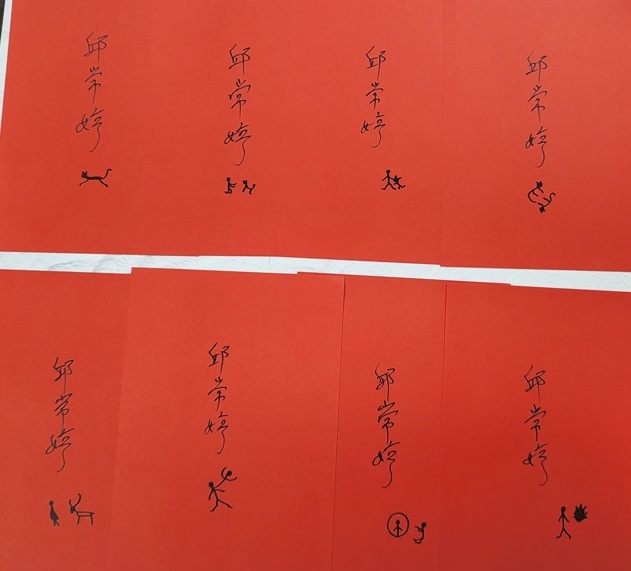 邱常婷
邱常婷
邱常婷
邱常婷
邱常婷
邱常婷
邱常婷
邱常婷